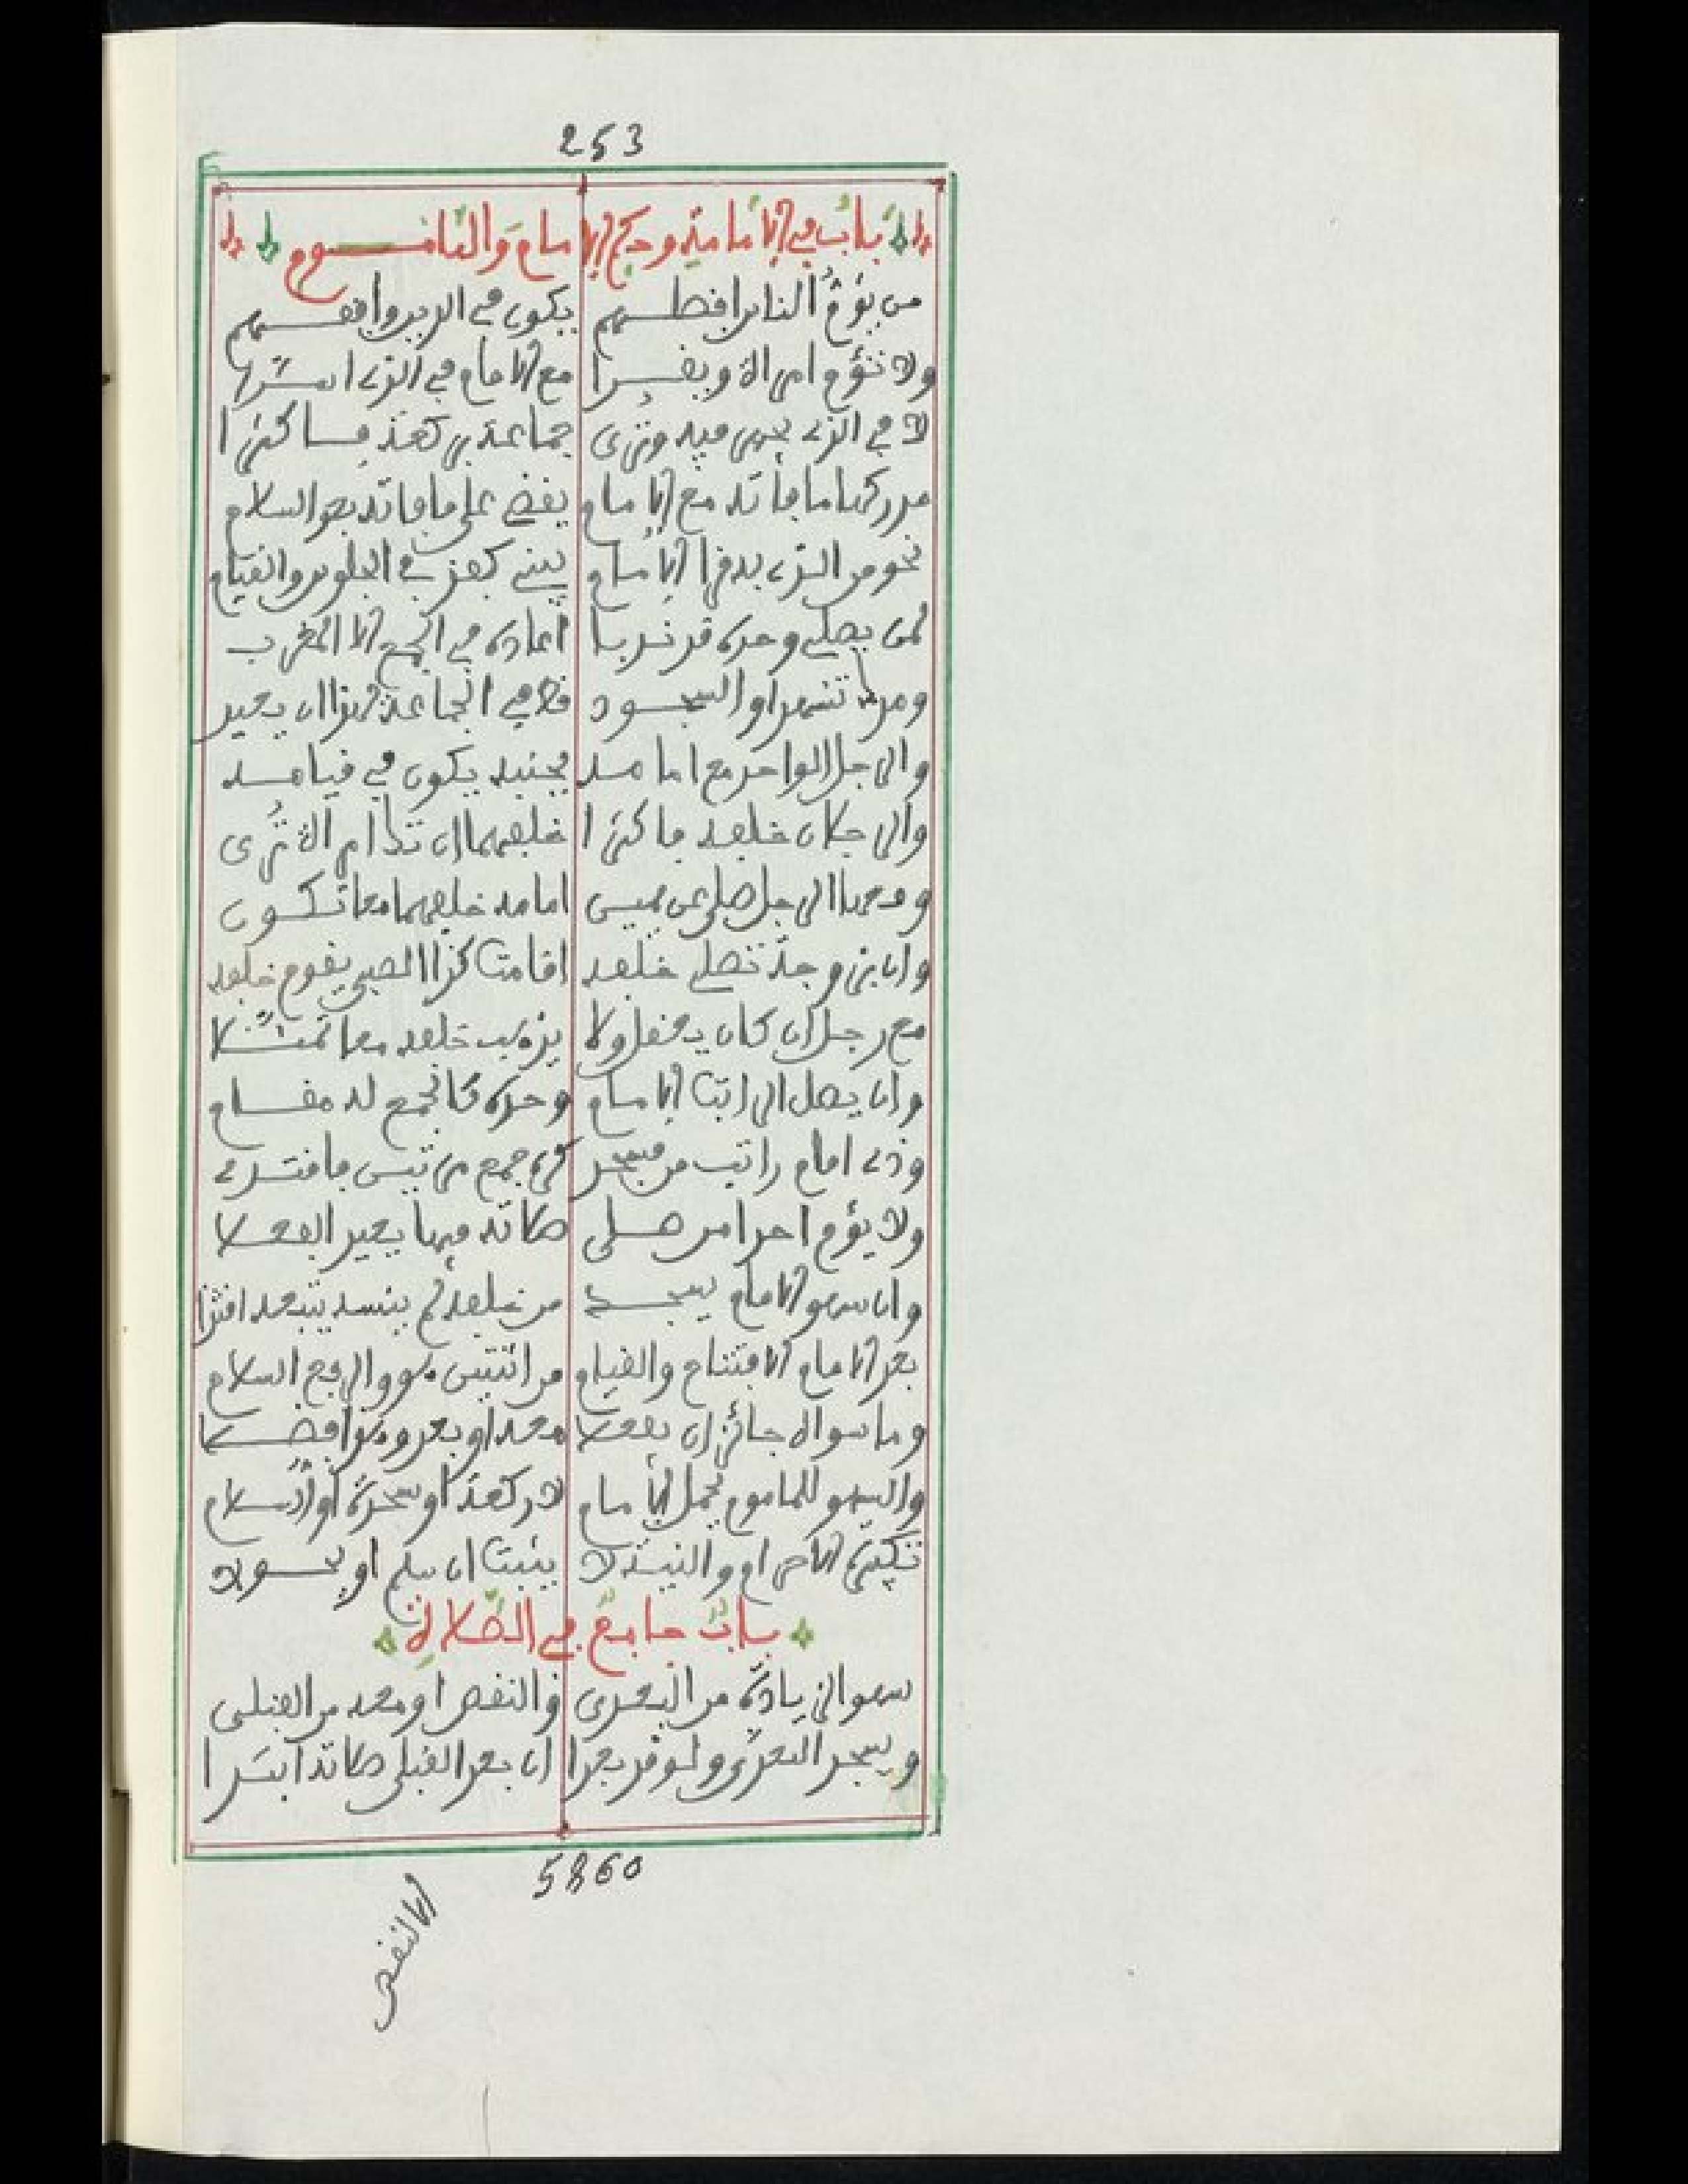 253
باب في الإمامة وحكم الإمام والمأموم
من يؤم الناس أفضلهم يكون في الدين وأفقههم
ولا تؤم امرأة ويقرا مع الإمام في الذي أسرها
لا في الذي يجهر فيه وترى جماعة بركعة فأكثرا
مدركها ما فاته مع الإمام يقضي على ما فاته بعد السلام
نحو من الذي به قرا الإمام يبني كفذ في الجلوس والقيام
لمن يصلي وحده قد ندبا أعاده في الجمع إلا المغرب
ومدرك تشهدا والسجود فلا في الجماعة لهذا أن يعيد
والرجل الواحد مع إمامه بجنبه يكون في قيامه
والرجلان خلفه فأكثرا خلفهما إن تك امرأة ترى
ومعها الرجل صلى عن يمين إمامه خلفهما معا تكون
وإن بزوجة تصلي خلفه أقامت كذا الصبي يقوم خلفه
مع رجل إن كان يعقل ولا يذهب خلفه معا تمثلا
وإن يصل الراتب الإمام وحده كالجمع له مقام
وذي إمام راتب من مسجد كره جمع مرتين فاقتدي
ولا يؤم أحدا من صلى صلاته فيها يعيد الفعلا
وإن سهو الإمام يسجد من خلفه لم ينسه يتبعه
بعد الإمام الافتتاح والقيام من اثنتين هو والرفع السلام
وما سواه جائز أن يفعلا معه أو بعد وهو أفضلا
والسهو للمأموم يحمل الإمام لا ركعة أو سجدة أو السلام
تكبيرة الإحرام والنية لا يثبت إن سلم أو يحولا
باب جامع في الصلاة
سهو الزيادة من البعدي والنقص أو معه من القبلي
ويسجد البعدي ولو قد بعدا إن بعد القبلي صلاته ابتدا
5860
إلا لنقص